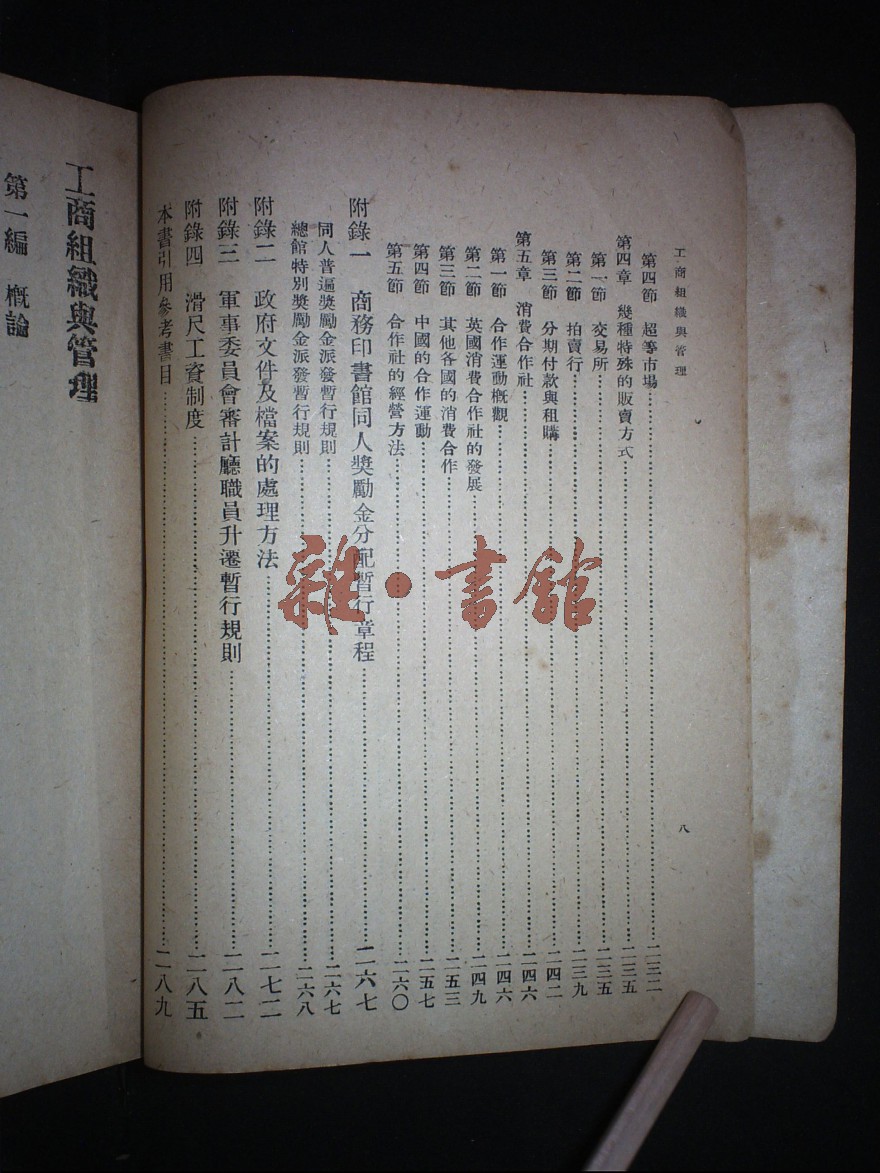 工商組織與管理
八
第四節　超等市場……二三二
第四章　幾種特殊的販賣方式……二三五
第一節　交易所……二三五
第二節　拍賣行……二三九
第三節　分期付款與租購……二四二
第五章　消費合作社……二四六
第一節　合作運動概觀……二四六
第二節　英國消費合作社的發展……二四九
第三節　其他各國的消費合作……二五三
第四節　中國的合作運動……二五七
第五節　合作社的經營方法……二六〇
附錄一　商務印書館同人獎勵金分配暫行章程……二六七
同人普遍獎勵金派發暫行規則……二六七
總館特別獎勵金派發暫行規則……二六八
附錄二　政府文件及檔案的處理方法……二七二
附錄三　軍事委員會審計廳職員升遷暫行規則……二八二
附錄四　滑尺工資制度……二八五
本書引用參考書目……二八九
工商組織與管理
第一編　概論
雜·書館